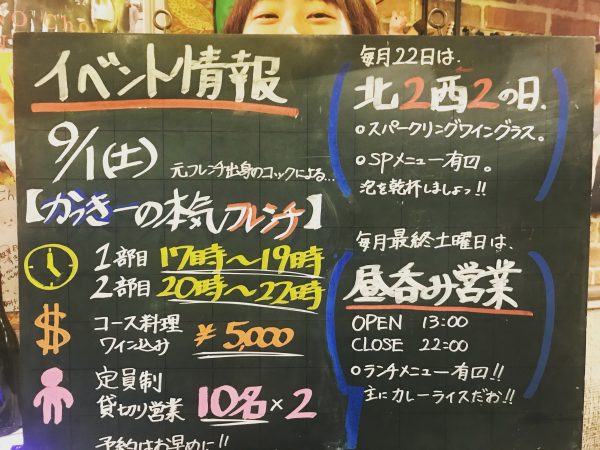 イベント情報
9/1(土)
元フレンチ出身のコックによる...
【かっきーの本気フレンチ】
1部目 17時〜19時
2部目 20時〜22時
$ コース料理
ワイン込み ¥5,000
定員制
貸切り営業 10名×2
予約はお早めに!!
毎月22日は、
北2西2の日、
○スパークリングワイングラス。
○SPメニュー有回。
泡を乾杯しましょっ!!
毎月最終土曜日は、
昼呑み営業
OPEN 13:00
CLOSE 22:00
○ランチメニュー有回!!
主にカレーライスだお!!